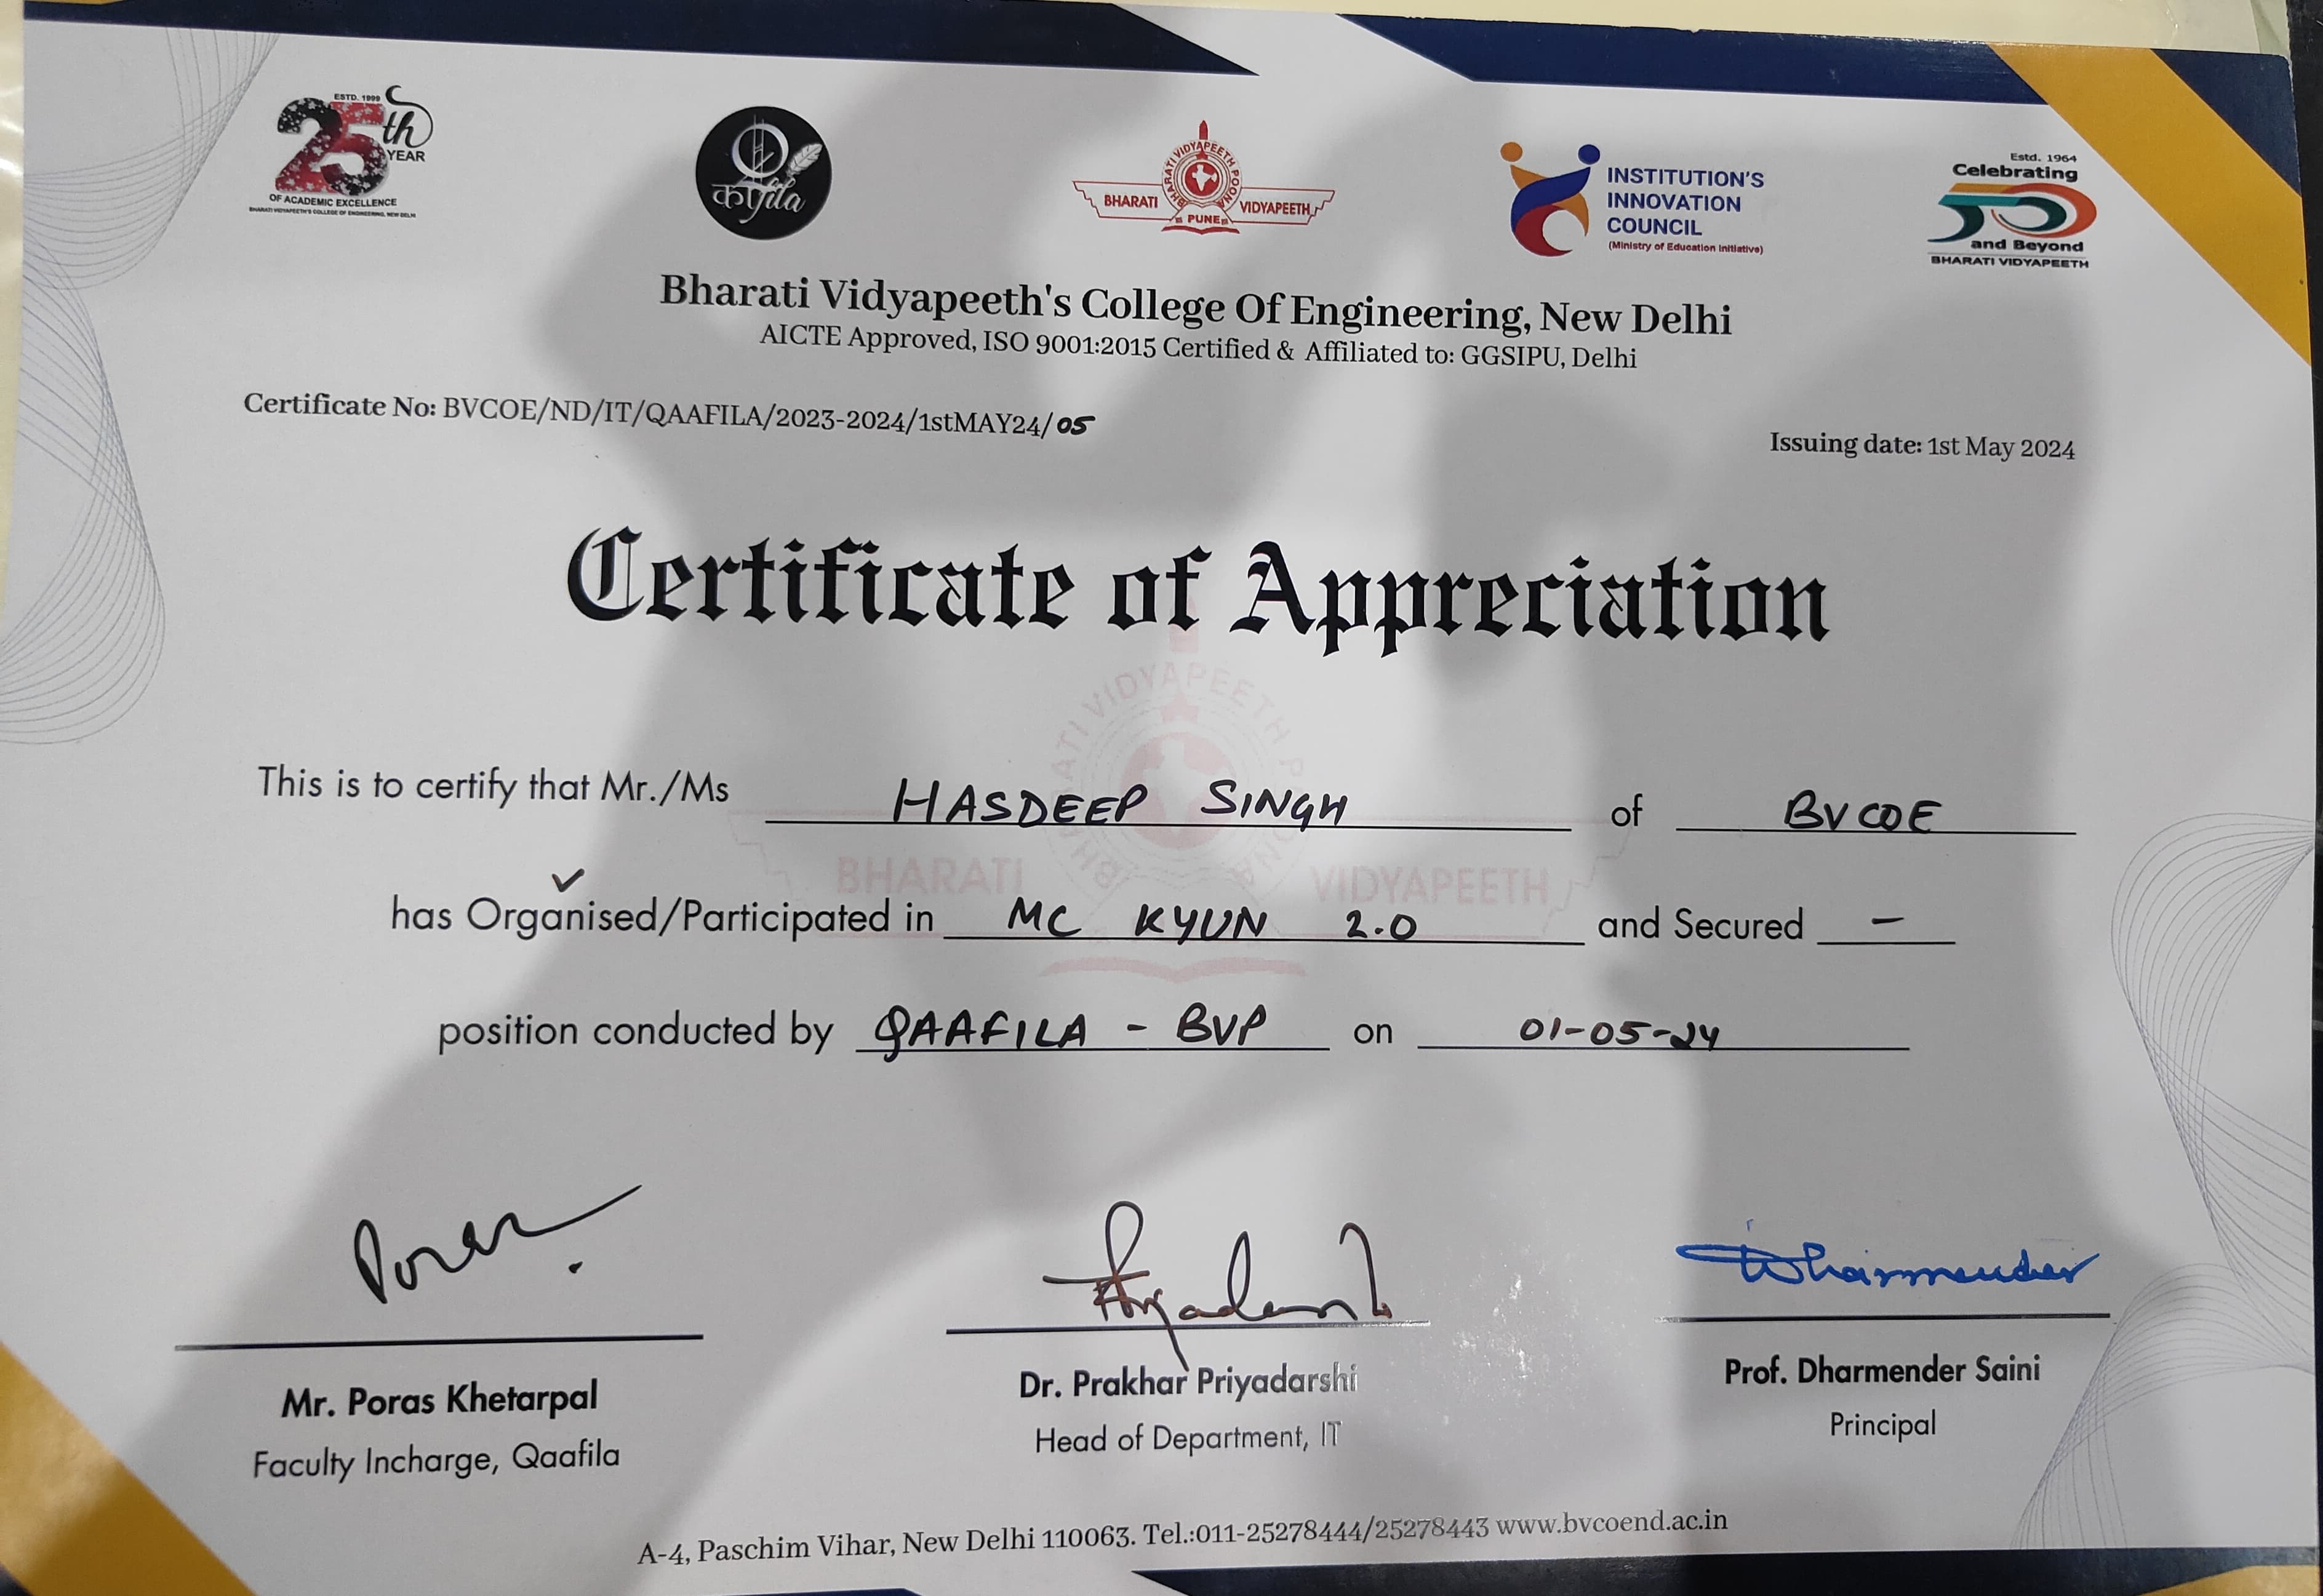 ESTD. 1999
25th
YEAR
OF ACADEMIC EXCELLENCE
BHARATI VIDYAPEETH'S COLLEGE OF ENGINEERING, NEW DELHI
BHARATI VIDYAPEETH POONA
BHARATI VIDYAPEETH
PUNE
INSTITUTION'S
INNOVATION
COUNCIL
(Ministry of Education Initiative)
Estd. 1964
Celebrating
50
and Beyond
BHARATI VIDYAPEETH
Bharati Vidyapeeth's College Of Engineering, New Delhi
AICTE Approved, ISO 9001:2015 Certified & Affiliated to: GGSIPU, Delhi
Certificate No: BVCOE/ND/IT/QAAFILA/2023-2024/1stMAY24/05
Issuing date: 1st May 2024
Certificate of Appreciation
This is to certify that Mr./Ms HASDEEP SINGH of BVCOE
has Organised/Participated in MC KYUN 2.0 and Secured -
position conducted by QAAFILA - BVP on 01-05-24
BHARATI VIDYAPEETH POONA
BHARATI VIDYAPEETH
Poras
Dharmender
Mr. Poras Khetarpal
Faculty Incharge, Qaafila
Dr. Prakhar Priyadarshi
Head of Department, IT
Prof. Dharmender Saini
Principal
A-4, Paschim Vihar, New Delhi 110063. Tel.:011-25278444/25278443 www.bvcoend.ac.in